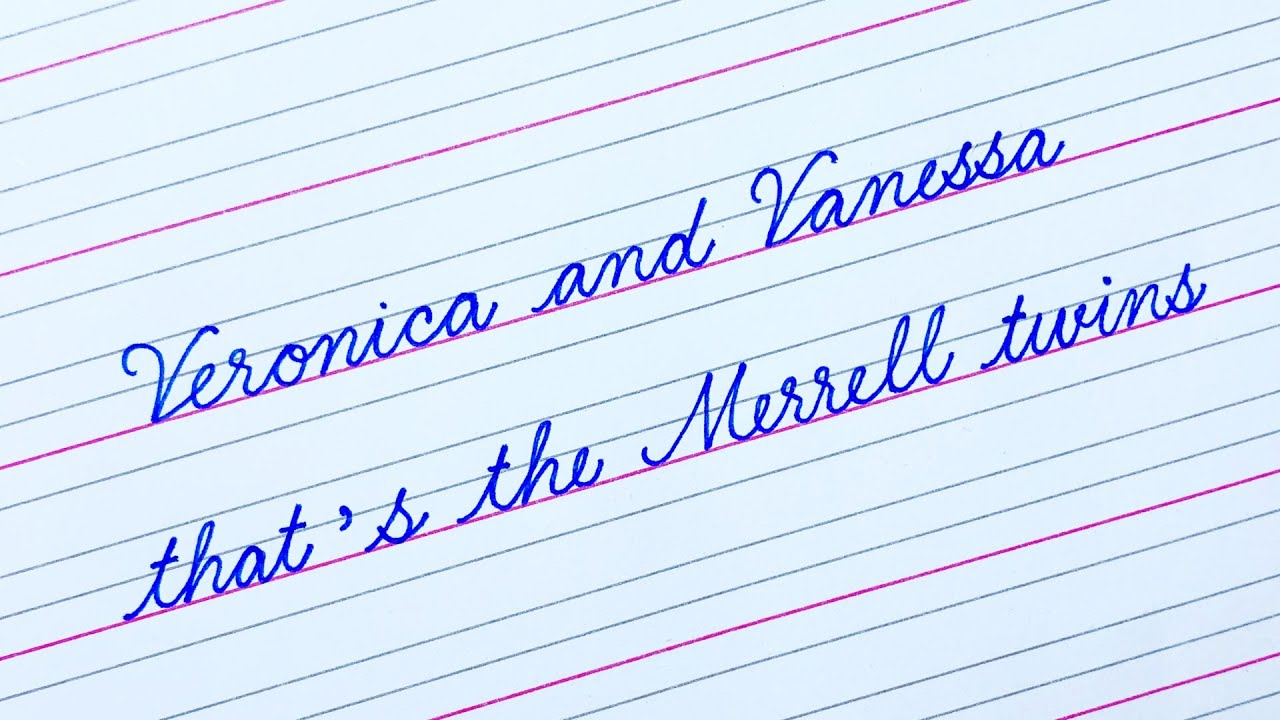 Veronica and Vanessa
that's the Merrell twins